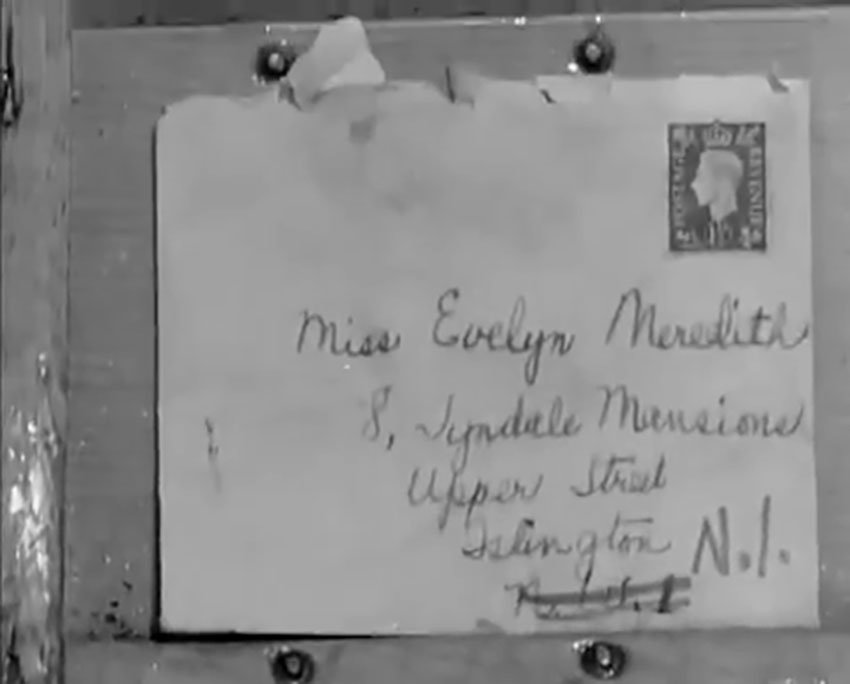 POSTAGE REVENUE
Miss Evelyn Meredith
8, Tyndale Mansions
Upper Street
Islington N.1.